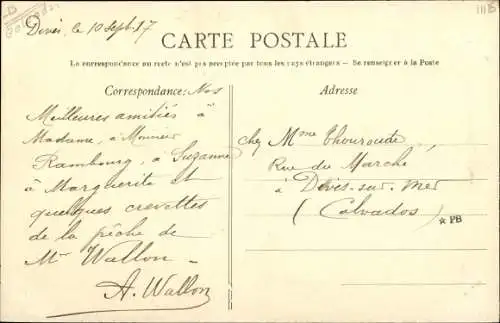 Dives, le 10 Sept. 17
111B
CARTE POSTALE
La correspondance au recto n'est pas acceptée par tous les pays étrangers — Se renseigner à la Poste
Correspondance: Nos
Meilleures amitiés à
Madame, à Monsieur
Rambourg, à Suzanne
à Marguerite et
quelques crevettes
de la pêche de
Mr Wallon —
A. Wallon
Adresse
chez Mme Thouroude
Rue du Marché
à Dives-sur-Mer
(Calvados)
★ PB